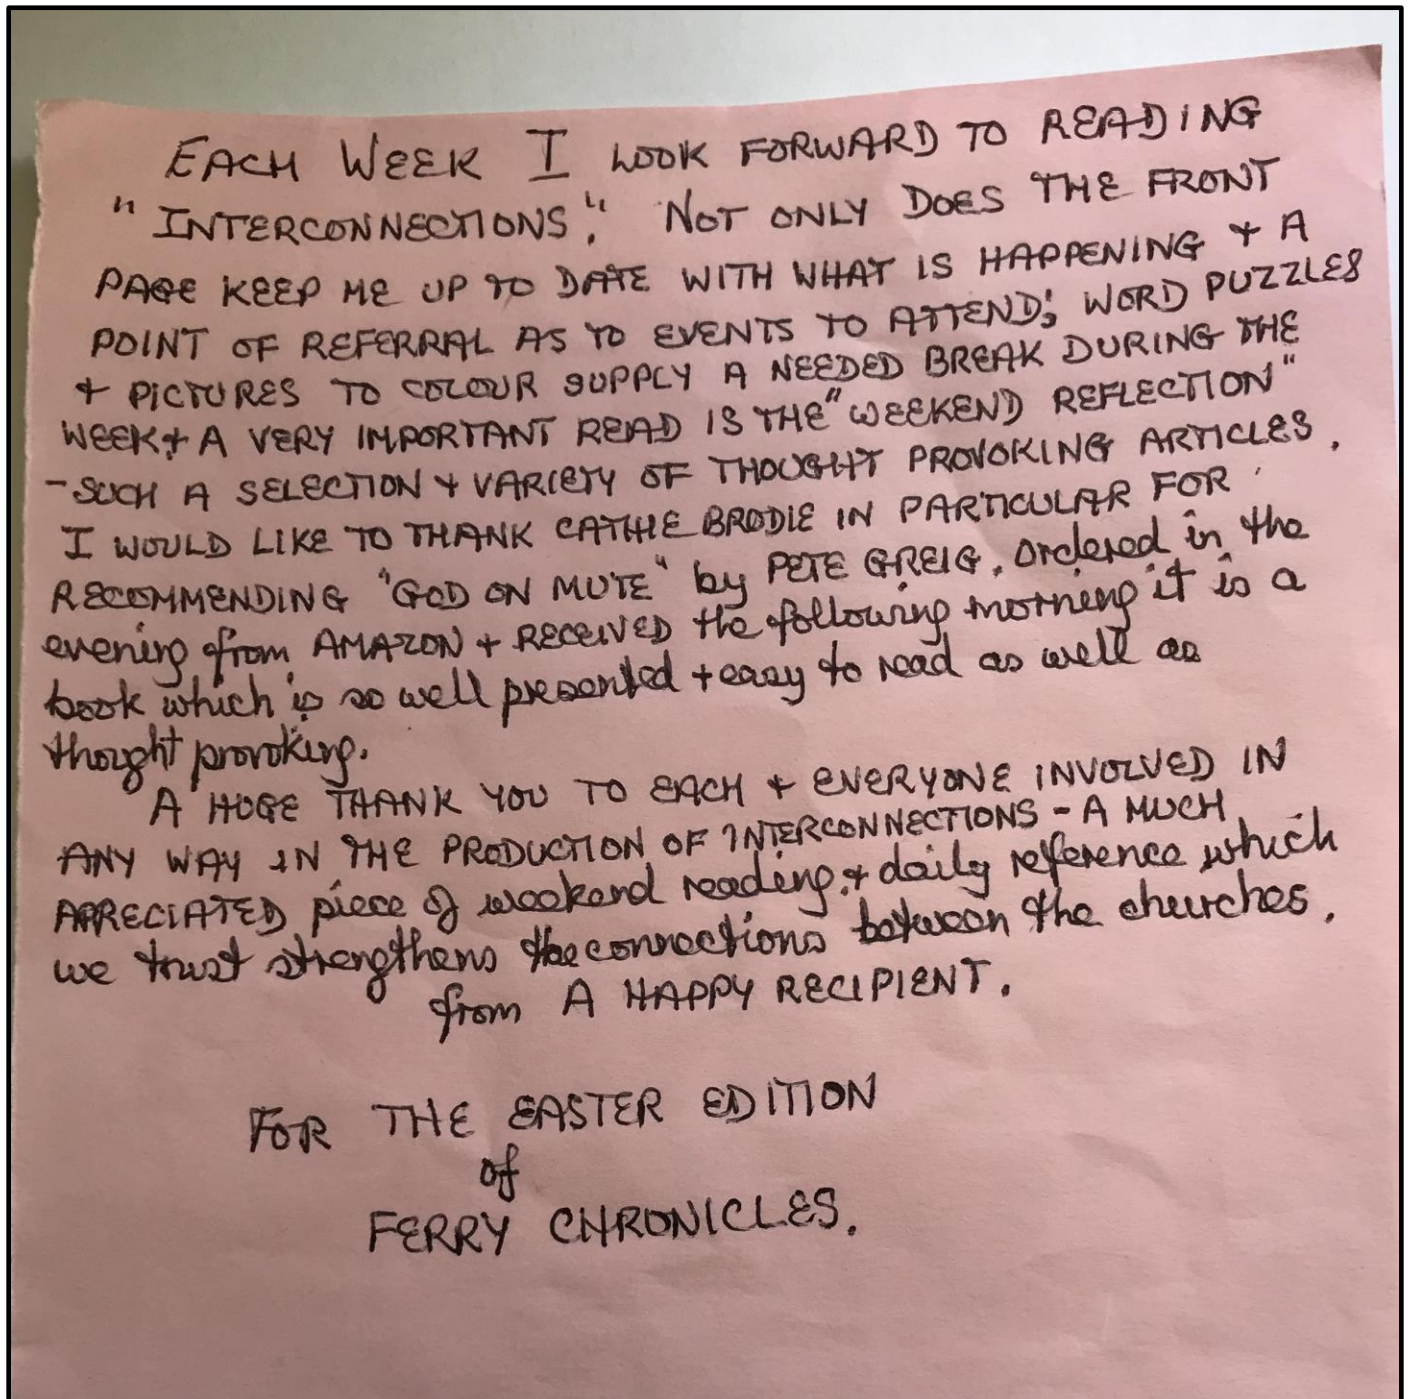 EACH WEEK I LOOK FORWARD TO READING
"INTERCONNECTIONS". NOT ONLY DOES THE FRONT
PAGE KEEP ME UP TO DATE WITH WHAT IS HAPPENING + A
POINT OF REFERRAL AS TO EVENTS TO ATTEND; WORD PUZZLES
+ PICTURES TO COLOUR SUPPLY A NEEDED BREAK DURING THE
WEEK + A VERY IMPORTANT READ IS THE "WEEKEND REFLECTION"
- SUCH A SELECTION + VARIETY OF THOUGHT PROVOKING ARTICLES.
I WOULD LIKE TO THANK CATHIE BRODIE IN PARTICULAR FOR
RECOMMENDING "GOD ON MUTE" by PETE GREIG. Ordered in the
evening from AMAZON + RECEIVED the following morning it is a
book which is so well presented + easy to read as well as
thought provoking.
A HUGE THANK YOU TO EACH + EVERYONE INVOLVED IN
ANY WAY IN THE PRODUCTION OF INTERCONNECTIONS - A MUCH
APPRECIATED piece of weekend reading + daily reference which
we trust strengthens the connections between the churches.
from A HAPPY RECIPIENT.
FOR THE EASTER EDITION
of
FERRY CHRONICLES.